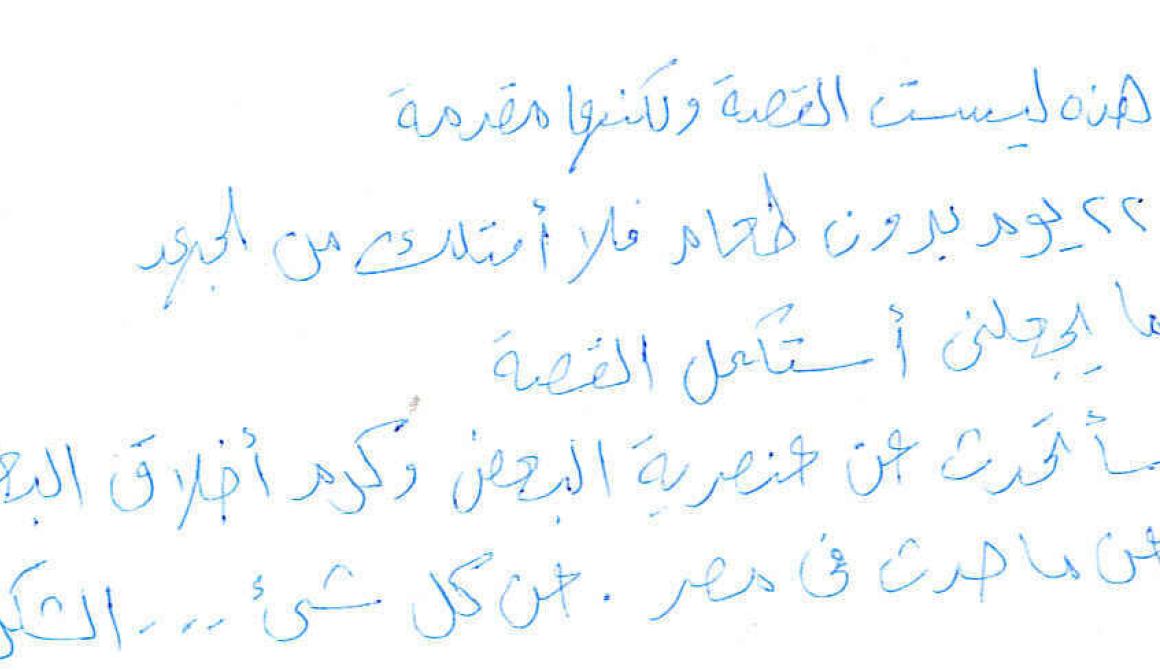 هذه ليست القصة ولكنها مقدمة
٢٢ يوم بدون طعام فلا أمتلك من الجهد
ما يجعلنى أستكمل القصة
سأتحدث عن عنصرية البعض وكرم أخلاق البعـ
عن ما حدث فى مصر . عن كل شئ ... الشكر